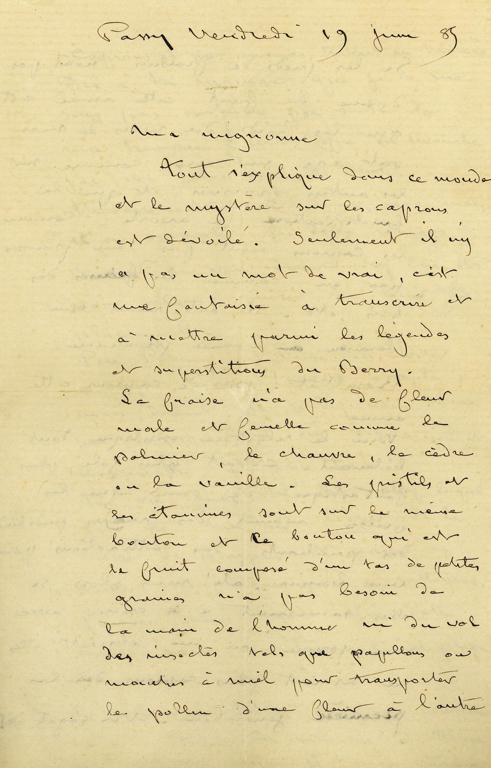 Passy Vendredi 19 juin 85
Ma mignonne
Tout s'explique dans ce monde
et le mystère sur les caprons
est dévoilé. Seulement il n'y
a pas un mot de vrai, c'est
une fantaisie à transcrire et
à mettre parmi les légendes
et superstitions du Berry.
La fraise n'a pas de fleur
male et femelle comme le
palmier, le chanvre, le cèdre
ou la vanille. Les pistils et
les étamines sont sur le même
bouton et ce bouton qui est
le fruit composé d'un tas de petites
graines n'a pas besoin de
la main de l'homme ni du vol
des insectes tels que papillons ou
mouches à miel pour transporter
le pollen d'une fleur à l'autre